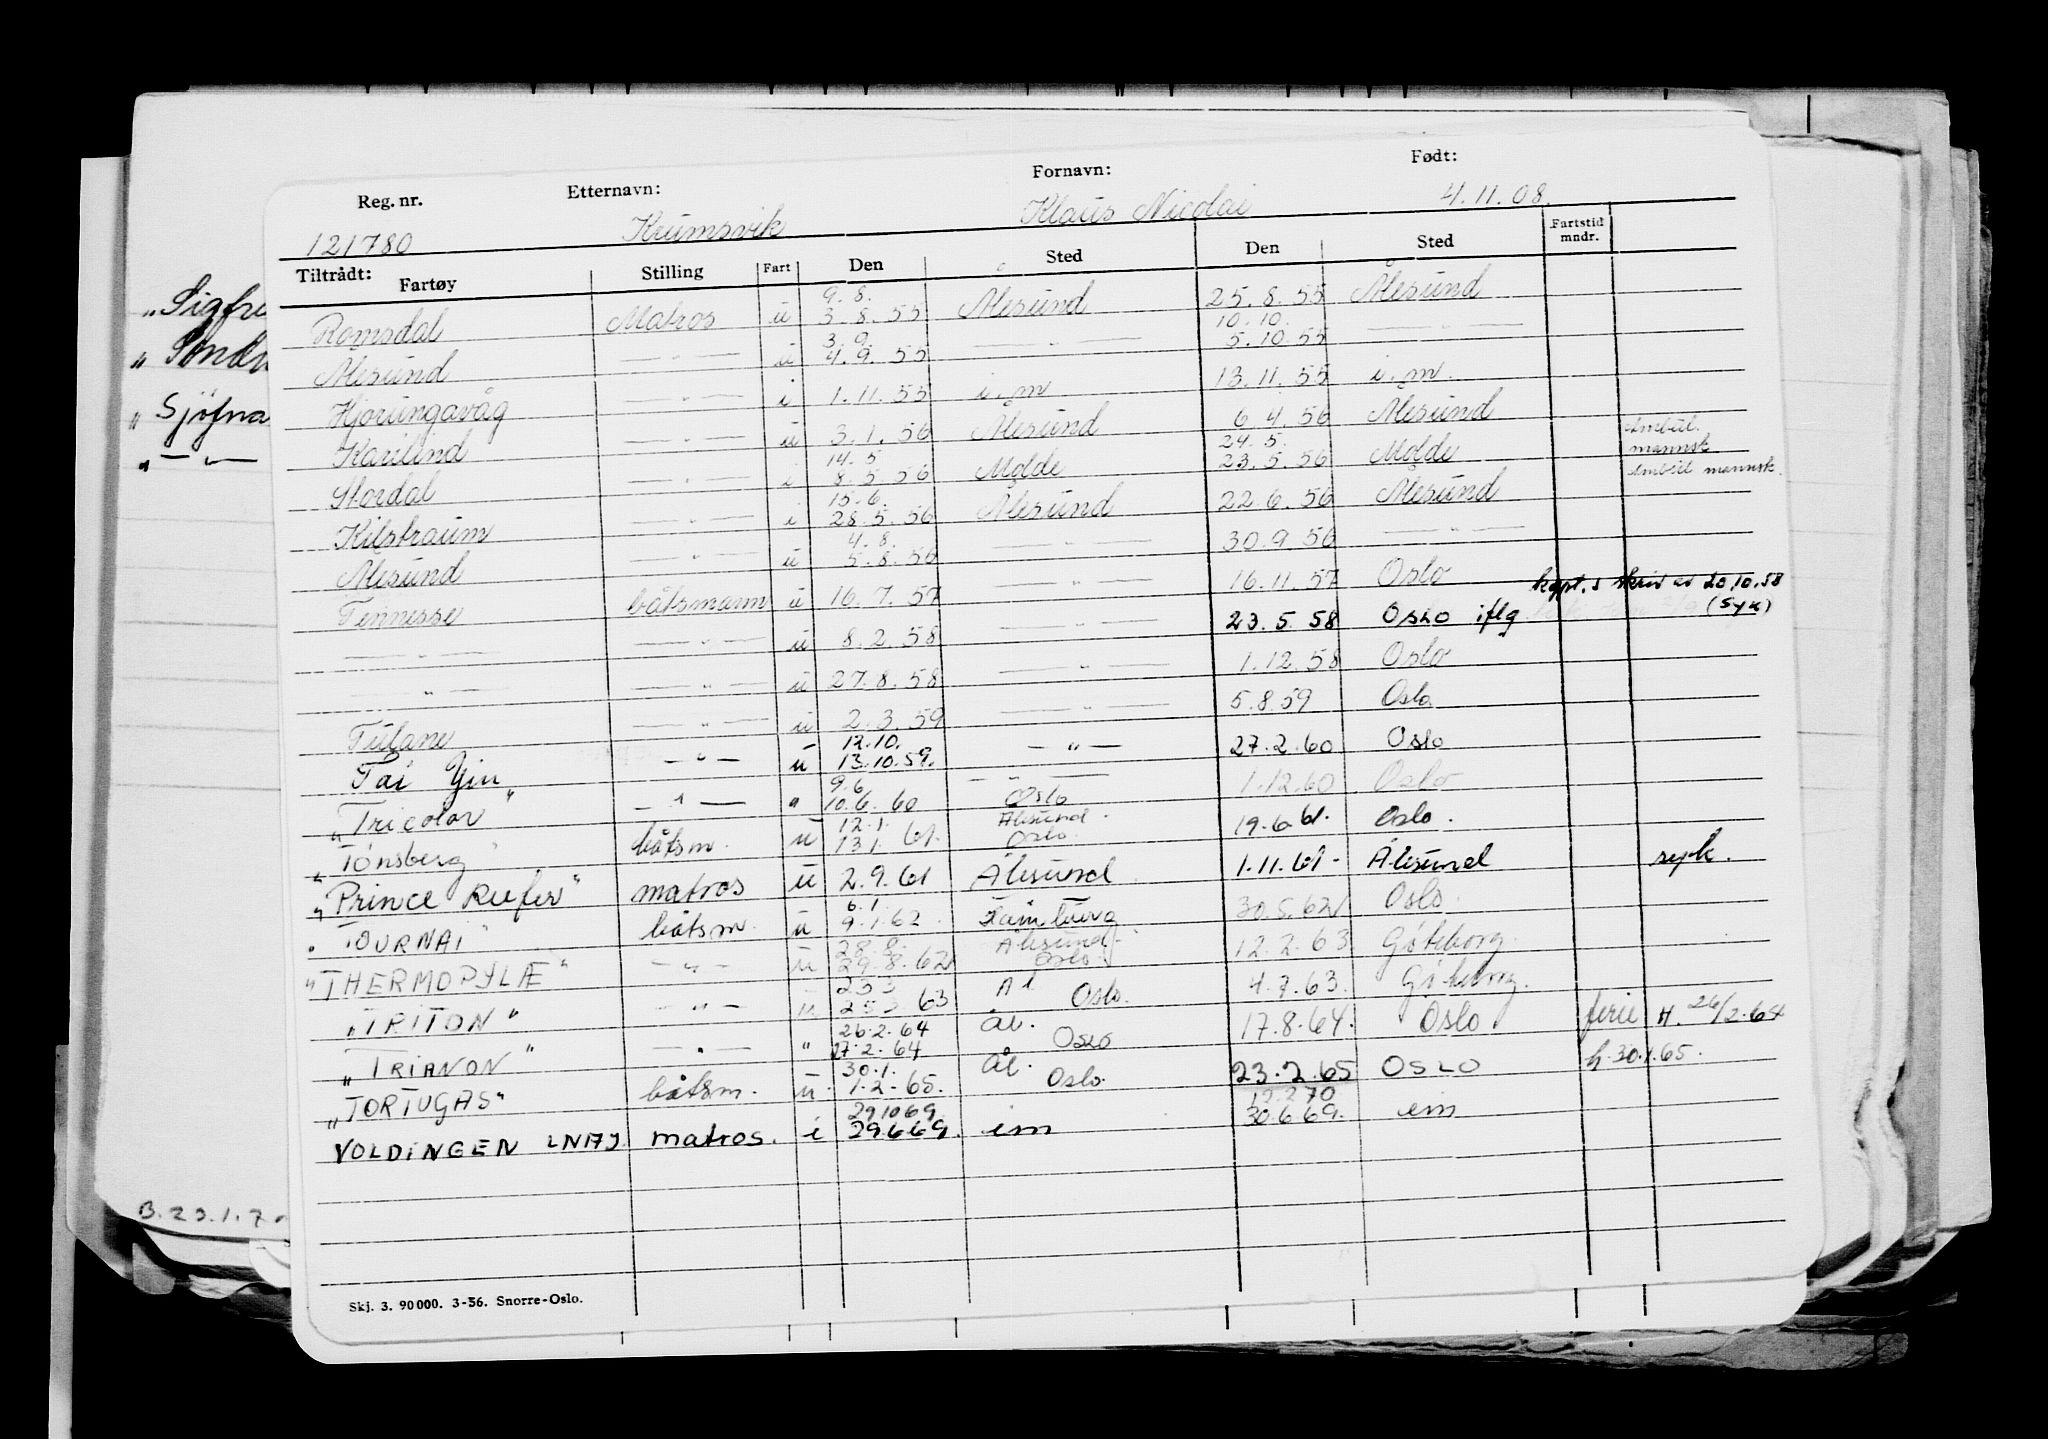 Reg. nr. Etternavn: Fornavn: Født:
121780 Krumsvik Klaus Nicolai 4.11.08.
Tiltrådt: Fartøy Stilling Fart Den Sted Den Sted Fartstid mndr.
9.8.
Romsdal Matros u 3.8.55 Ålesund 25.8.55 Ålesund
3.9. 10.10.
Ålesund — " — u 4.9.55 — " — 5.10.55 — " —
Hjørungavåg — " — i 1.11.55 i.m 13.11.55 i.m.
Karilind — " — u 3.1.56 Ålesund 6.4.56 Ålesund
14.5 24.5. mannsk
Stordal — " — i 8.5.56 Molde 23.5.56 Molde mannsk.
15.6.
Kilstraum — " — i 28.5.56 Ålesund 22.6.56 Ålesund
4.8.
Ålesund — " — u 5.8.56 — " — 30.9.56 — " —
Tennesse båtsmann u 16.7.57 — " — 16.11.57 Oslo kapt.s skriv av 20.10.58
— " — u 8.2.58 — " — 23.5.58 Oslo iflg (syk)
— " — — " — u 27.8.58 — " — 1.12.58 Oslo
Tulane — " — u 2.3.59 — " — 5.8.59 Oslo
12.10.
Tai Yin — " — u 13.10.59. — " — 27.2.60 Oslo
9.6 — " —
"Tricolor" — " — " 10.6.60 Oslo 1.12.60 Oslo
12.1. Ålesund.
"Tønsberg" båtsm. u 13.1.61. Oslo. 19.6.61. Oslo.
"Prince Reefer" matros u 2.9.61 Ålesund 1.11.61- Ålesund syk.
6.1.
"TOURNAI" båtsm. u 9.1.62. 30.5.62 Oslo.
28.8. Ålesund.
"THERMOPYLÆ" — " — u 29.8.62 Oslo. 12.2.63 Gøteborg.
23 3 Ål
"TRITON" — " — u 25 3 63 Oslo. 4.7.63. Gøteborg.
26.2.64 Ål.
"TRIANON" — " — " 27.2.64 Oslo 17.8.64. Oslo ferie H. 26/2.64
30.1. Ål.
"TORTUGAS" båtsm. u. 1.2-65. Oslo. 23.2.65 OSLO h.30.1.65.
29.10 69. 12.2 70
VOLDINGEN LNAJ. matros. i 29.6 69. im 30.6 69. im
Skj. 3. 90 000. 3-56. Snorre-Oslo.
"Sigfr
"
" Sjøfna
" — " —
B.23.1.7